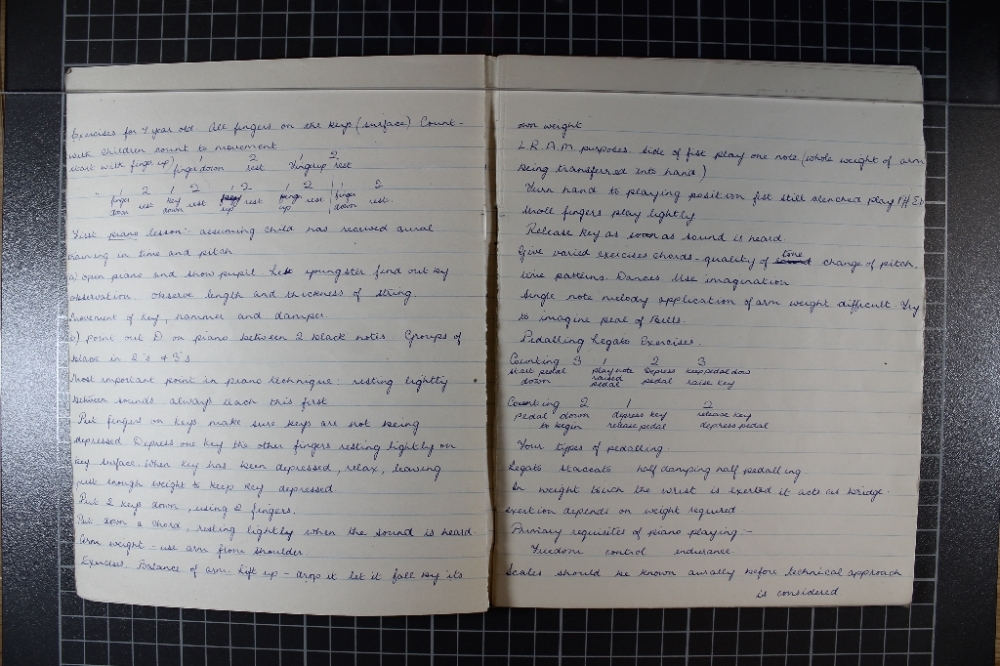 Exercises for 4 year old. All fingers on the keys (surface) Count-
with children count to movement
start with finger up) 1 finger down 2 rest 1 finger up 2 rest
1 finger down 2 rest 1 key down 2 rest 1 up 2 rest 1 finger up 2 rest 1 finger down 2 rest.
First piano lesson: assuming child has received aural
training in time and pitch
a) open piano and show pupil. Let youngster find out by
observation. observe length and thickness of string
movement of key, hammer and damper.
b) point out D on piano between 2 black notes. Groups of
black in 2's + 3's
Most important point in piano technique: resting lightly
between sounds always teach this first
Put fingers on keys make sure keys are not being
depressed. Depress one key the other fingers resting lightly on
key surface. When key has been depressed, relax, leaving
just enough weight to keep key depressed
Put 2 keys down, using 2 fingers.
Put down a chord, resting lightly when the sound is heard
Arm weight - use arm from shoulder
Exercises. Balance of arm. Lift up - drop it let it fall by its
own weight
L.R.A.M. purposes. side of fist play one note (whole weight of arm
being transferred into hand)
Turn hand to playing position fist still clenched play
small fingers play lightly
Release key as soon as sound is heard.
Give varied exercises chords - quality of tone change of pitch.
wine patterns. Dances. Use imagination
Single note melody application of arm weight difficult. Try
to imagine peal of Bells.
Pedalling Legato Exercises.
Counting 3 1 2 3
start pedal play note Depress keep pedal down
down raised pedal pedal raise key
Counting 2 1 2
pedal down depress key release key
to begin release pedal depress pedal
Four types of pedalling.
Legato staccato half damping half pedalling
In weight touch the wrist is exerted it acts as bridge.
exertion depends on weight required
Primary requisites of piano playing:-
Freedom control endurance.
Scales should be known aurally before technical approach
is considered